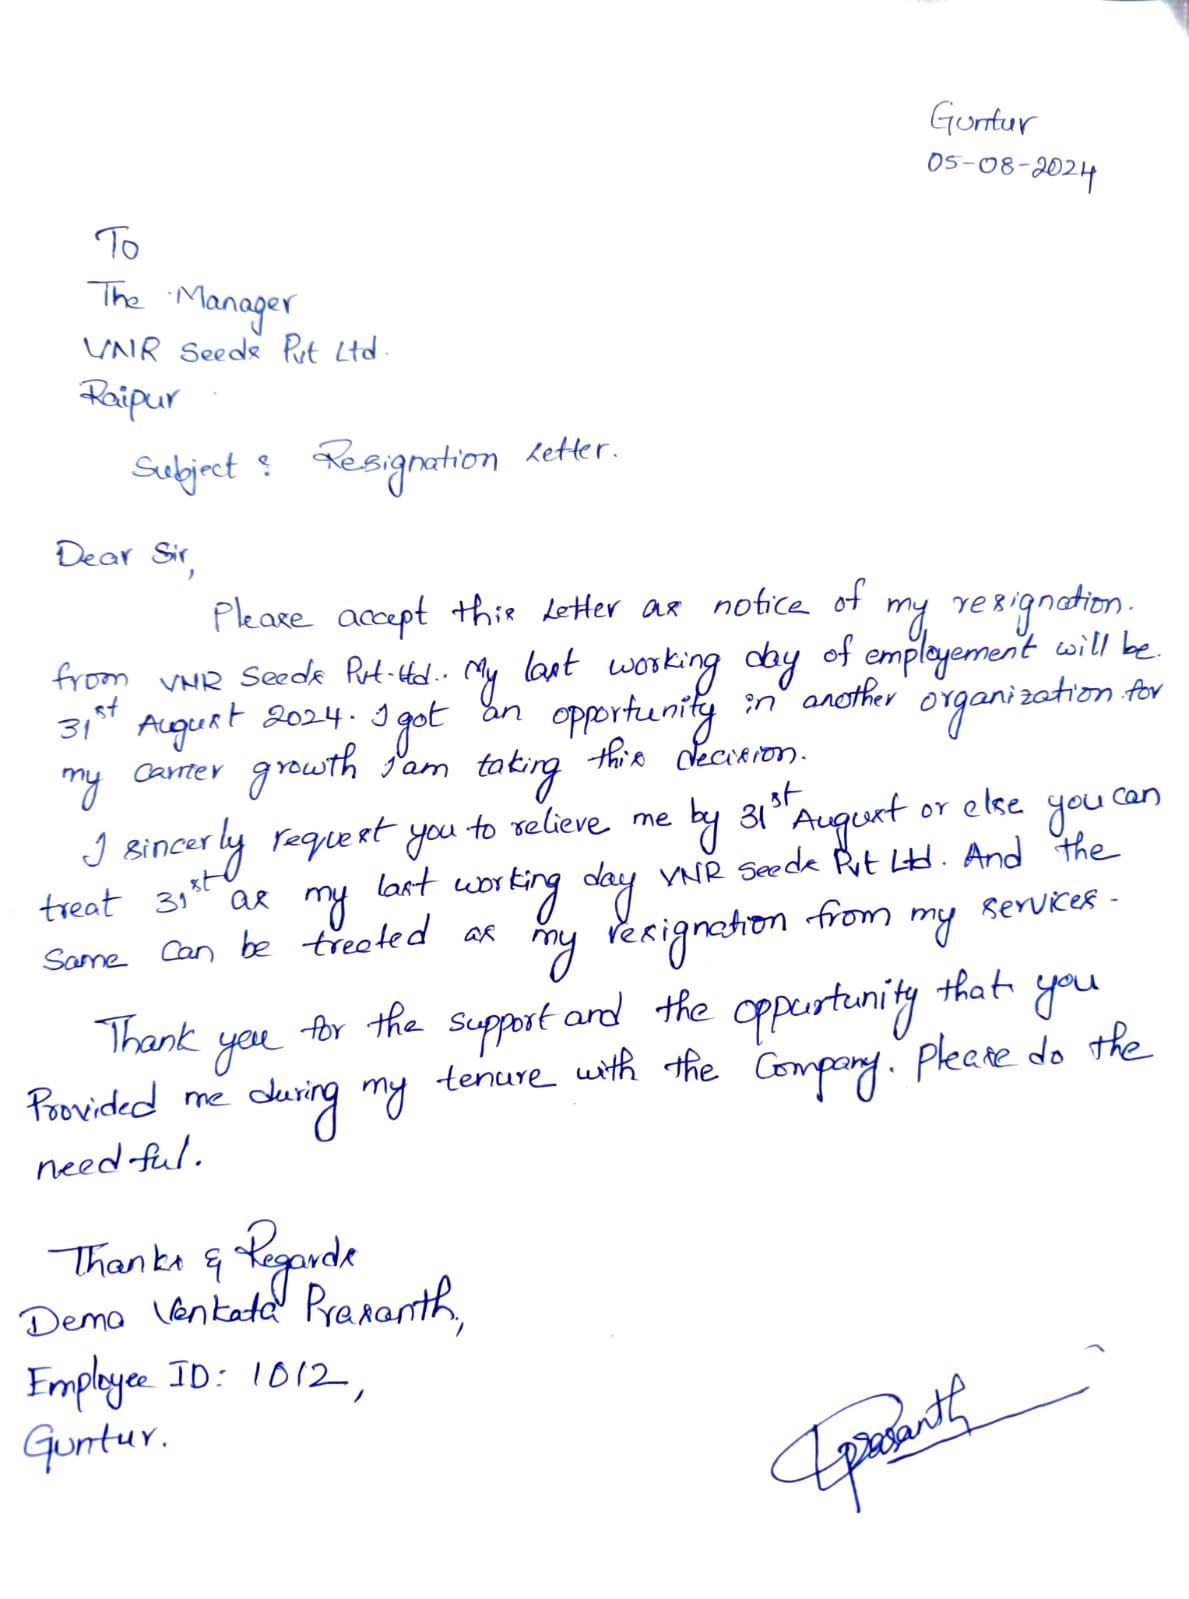 Guntur
05-08-2024
To
The Manager
VNR Seeds Pvt Ltd.
Raipur
Subject : Resignation Letter.
Dear Sir,
Please accept this Letter as notice of my resignation.
from VNR Seeds Pvt.Ltd.. My last working day of employement will be.
31st August 2024. I got an opportunity in another organization for
my carrier growth I am taking this decision.
I sincerly request you to relieve me by 31st August or else you can
treat 31st as my last working day VNR Seeds Pvt Ltd. And the
Same Can be treated as my resignation from my services.
Thank you for the support and the oppurtunity that you
Provided me during my tenure with the Company. Please do the
needful.
Thanks & Regards
Dema Venkata Prasanth,
Employee ID: 1012,
Guntur.
Prasanth